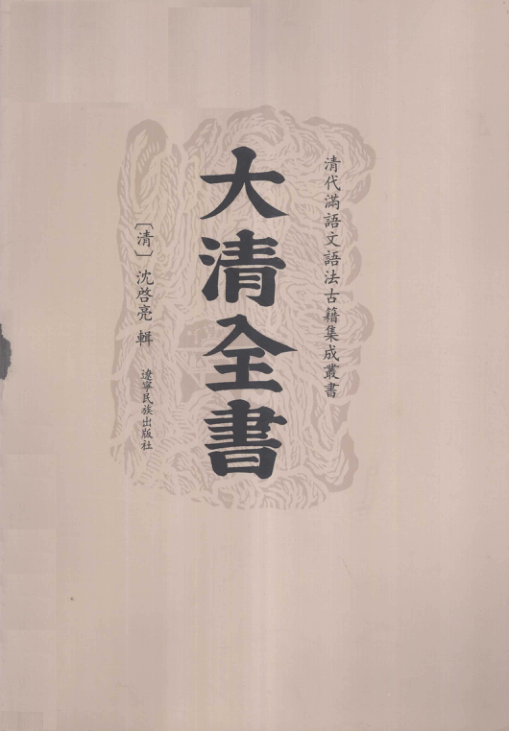 清代滿語文語法古籍集成叢書
大清全書
〔清〕沈啓亮 輯
遼寧民族出版社